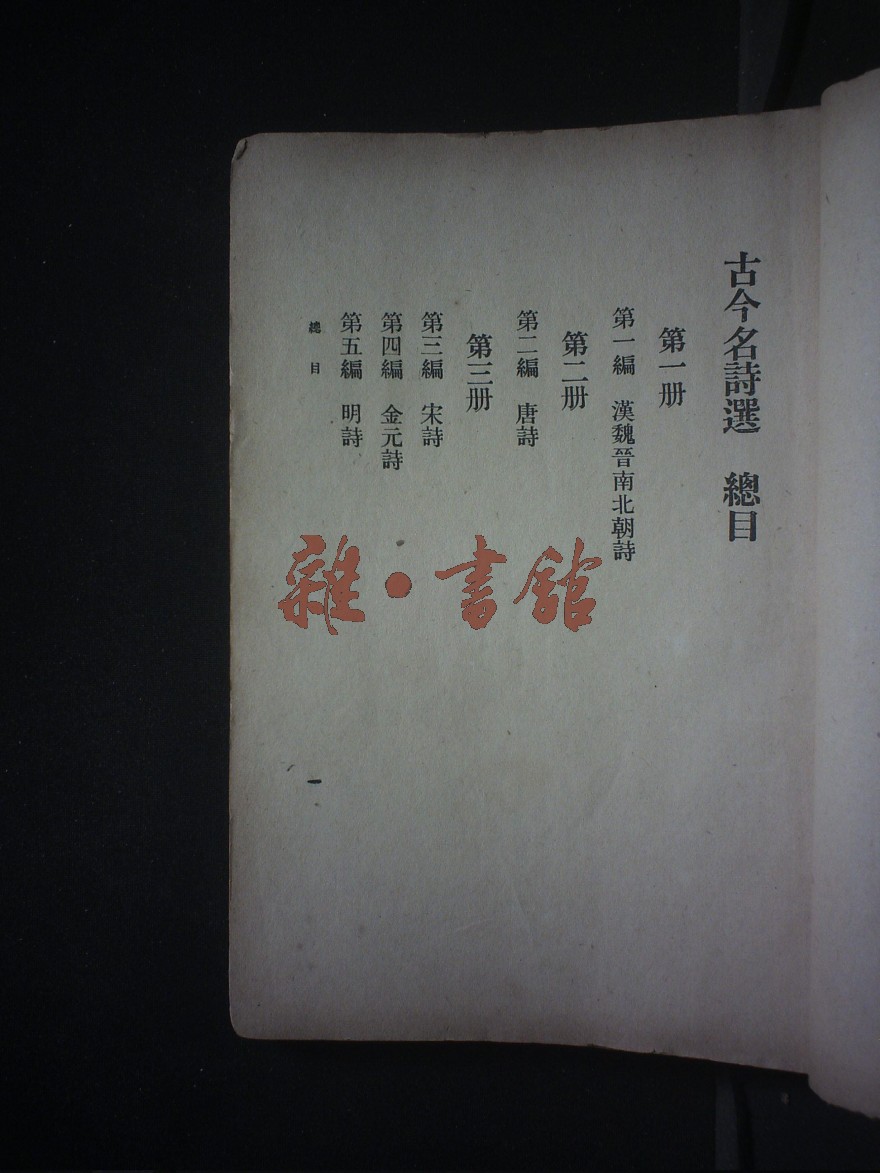 古今名詩選　總目
第一册
第一編　漢魏晉南北朝詩
第二册
第二編　唐詩
第三册
第三編　宋詩
第四編　金元詩
第五編　明詩
總目
一
雜·書館